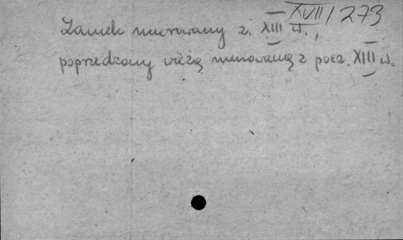 XVII/273
Zamek murowany z. XIII w.,
poprzedzony wieżą murowaną z pocz. XIII w.